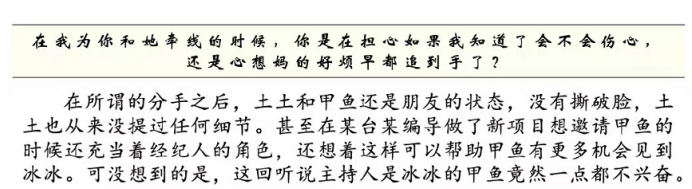 在我为你和她牵线的时候，你是在担心如果我知道了会不会伤心，
还是心想妈的好烦早都追到手了？
在所谓的分手之后，土土和甲鱼还是朋友的状态，没有撕破脸，土
土也从来没提过任何细节。甚至在某台某编导做了新项目想邀请甲鱼的
时候还充当着经纪人的角色，还想着这样可以帮助甲鱼有更多机会见到
冰冰。可没想到的是，这回听说主持人是冰冰的甲鱼竟然一点都不兴奋。